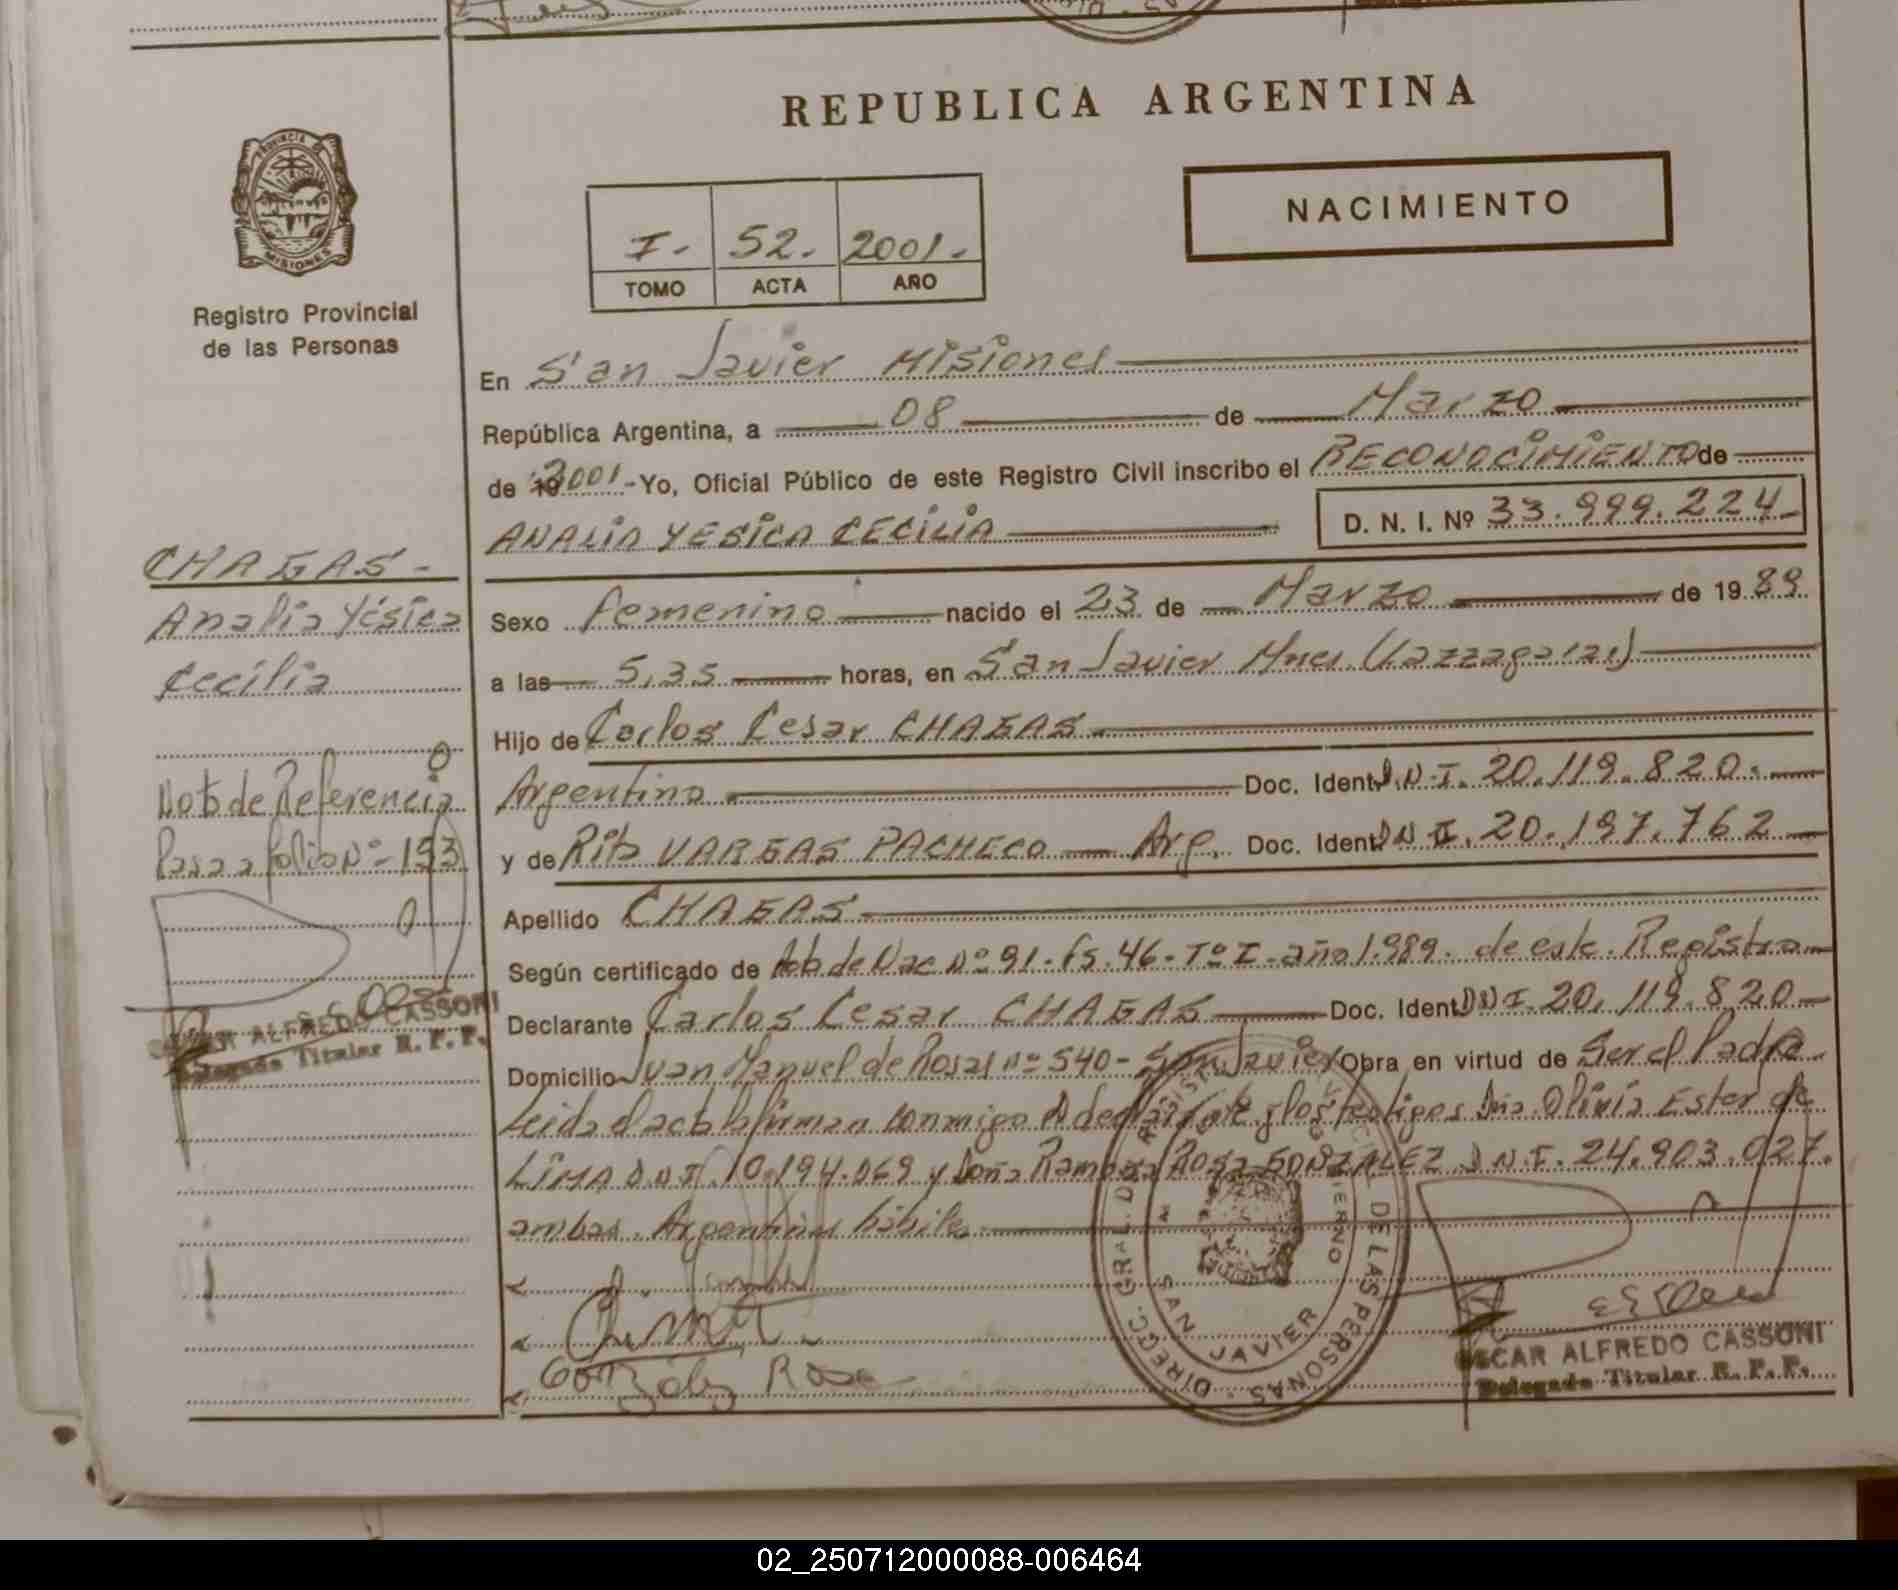 REPUBLICA ARGENTINA
NACIMIENTO
I. 52. 2001.
TOMO ACTA AÑO
PROVINCIA DE
MISIONES
Registro Provincial
de las Personas
CHAGAS.-
Analia Yésica
Cecilia
Nota de Referencia
Pasa a folio Nº- 193
OSCAR ALFREDO CASSONI
Delegado Titular R. P. P.
En San Javier Misiones
República Argentina, a 08 de Marzo
de 2001.- Yo, Oficial Público de este Registro Civil inscribo el RECONOCIMIENTO de
ANALIA YESICA CECILIA D. N. I. Nº 33.999.224-
Sexo femenino nacido el 23 de Marzo de 1989.
a las 5,35 horas, en San Javier Mnes
Hijo de Carlos Cesar CHAGAS.
Argentino Doc. Ident. D.N.I. 20.119.820.
y de Rita VARGAS PACHECO — Arg. Doc. Ident. D N I. 20.197.762
Apellido CHAGAS
Según certificado de Acta de Nac Nº 91. fs. 46. Tº I. año 1.989. de este Registro
Declarante Carlos Cesar CHAGAS Doc. Ident. DNI. 20.119.820
Domicilio Juan Manuel de Rosas nº 540- San Javier Obra en virtud de Ser el Padre
Leida el acta la firman conmigo el declarante y los testigos Dña. Olinia Ester de
LIMA D N I. 10.194.069 y Doña Ramona Rosa GONZALEZ D N I. 24.903.027.
ambas. Argentinas hábiles
González Rosa
DIRECC. GRAL. DEL REGISTRO DE LAS PERSONAS
SAN JAVIER
OSCAR ALFREDO CASSONI
Delegado Titular R. P. P.
02_250712000088-006464